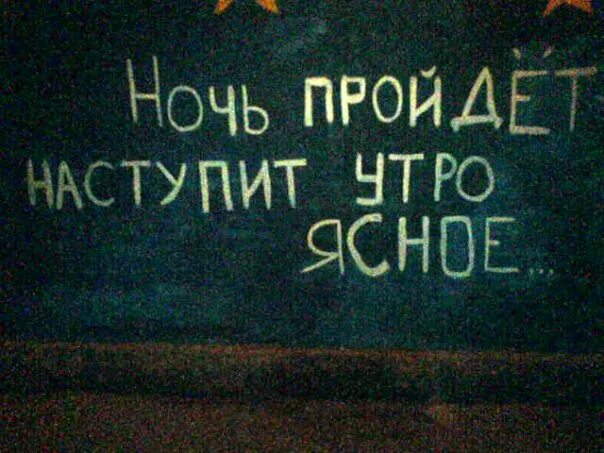 Ночь пройдёт
наступит утро
ясное...